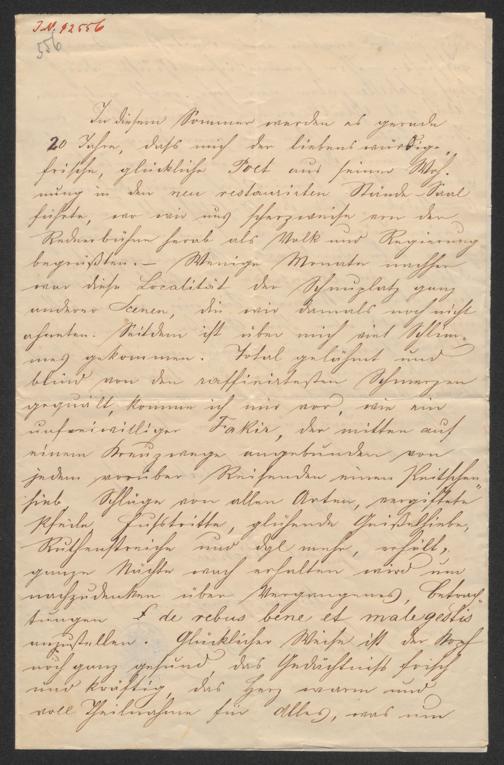 I.N. 92556
556
In diesem Sommer werden es gerade
20 Jahre, daß mich der liebenswürdige,
frische, glückliche Poet aus seiner Woh-
nung in den neu restaurirten Stände-Saal
führte, wo wir uns scherzweise von der
Rednerbühne herab als Volk und Regierung
begrüßten. – Wenige Monate nachher
war diese Localität der Schauplatz ganz
anderer Scenen, die wir damals noch nicht
ahnten. Seitdem ist über mich viel Schlim-
mes gekommen. Total gelähmt und
blind von den raffinirtesten Schmerzen
gequält, komme ich mir vor, wie ein
unfreiwilliger Fakir, der mitten auf
einem Kreuzwege angebunden von
jedem vorüber Reisenden einen Peitschen-
hieb Schläge von allen Arten, vergiftete
Pfeile Fußtritte, glühende Geißelhiebe,
Ruthenstreiche und dgl mehr, erhält,
ganze Nächte wach erhalten wird um
nachzudenken über Vergangenes, Betrach-
tungen de rebus bene et male gestis
anzustellen. Glücklicher Weise ist der Kopf
noch ganz gesund, das Gedächtniß frisch
und kräftig, das Herz warm und
voll Theilnahme für Alles, was um